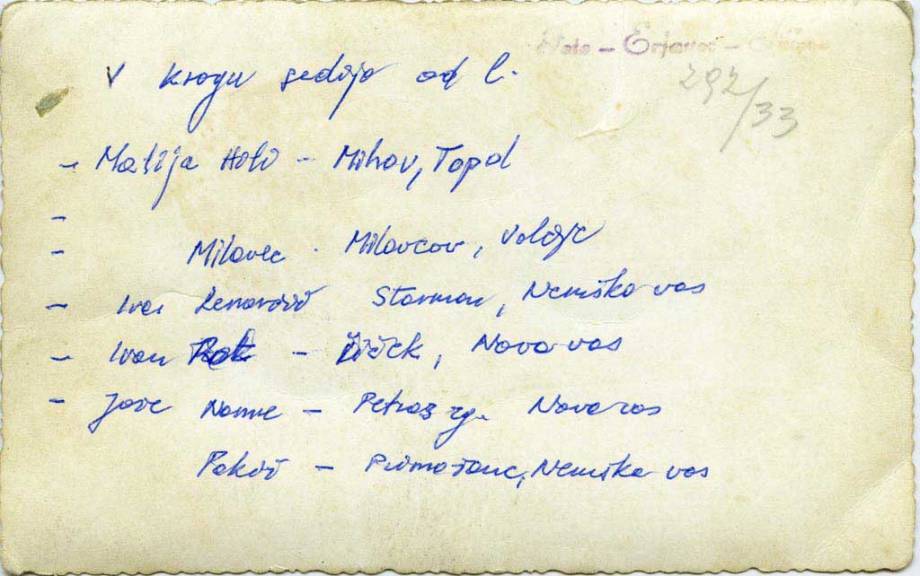 Foto - Erjavec -
292/33
V krogu sedijo od l.
- Matija Hiti - Mihov, Topol
-
- Milavec - Milavcov, Volčje
- Ivan Lenarčič Starman, Nemška vas
- Ivan Rok - Žiček, Nova vas
- Jože Nanne - Petraš zg. Nova vas
Pakiž - Primožane, Nemška vas